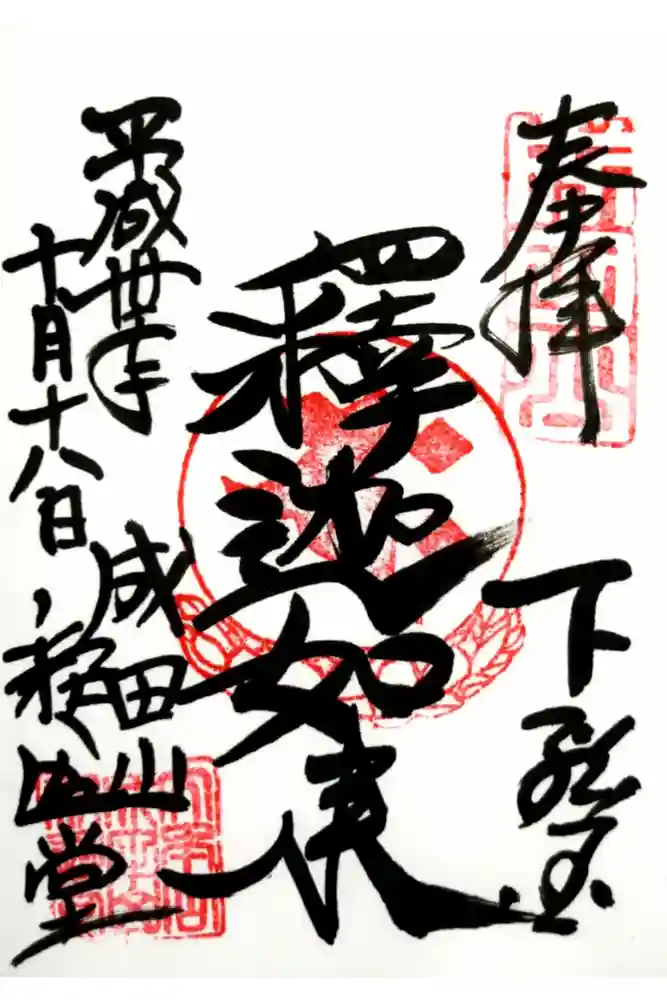 奉拝
下総国
釋迦如来
成田山
釈迦堂
平成卅年
十月十八日